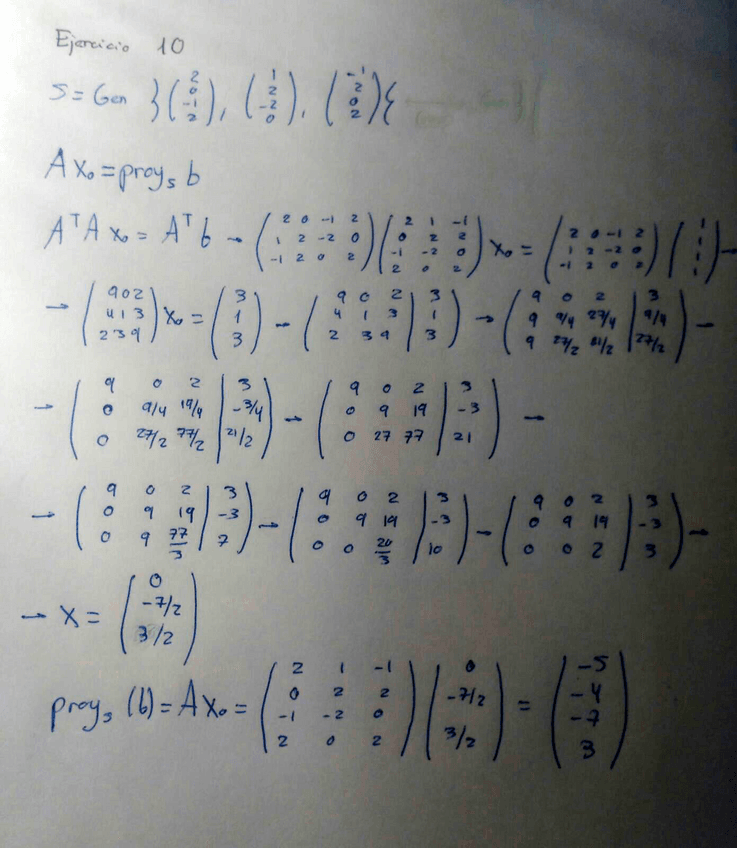 Ejercicio 10
S = Gen }(2 0 -1 2), (1 2 -2 0), (-1 2 0 2){
A x₀ = proy_s b
AᵀA x₀ = Aᵀb → (2 0 -1 2 / 1 2 -2 0 / -1 2 0 2)(2 1 -1 / 0 2 2 / -1 -2 0 / 2 0 2) x₀ = (2 0 -1 2 / 1 2 -2 0 / -1 2 0 2)(1 1 1 1) →
→ (9 0 2 / 4 1 3 / 2 3 9) x₀ = (3 1 3) → (9 0 2 | 3 / 4 1 3 | 1 / 2 3 9 | 3) → (9 0 2 | 3 / 9 9/4 27/4 | 9/4 / 9 27/2 81/2 | 27/2) →
→ (9 0 2 | 3 / 0 9/4 19/4 | -3/4 / 0 27/2 77/2 | 21/2) → (9 0 2 | 3 / 0 9 19 | -3 / 0 27 77 | 21) →
→ (9 0 2 | 3 / 0 9 19 | -3 / 0 9 77/3 | 7) → (9 0 2 | 3 / 0 9 19 | -3 / 0 0 20/3 | 10) → (9 0 2 | 3 / 0 9 19 | -3 / 0 0 2 | 3) →
→ X = (0 -7/2 3/2)
proy_s (b) = A x₀ = (2 1 -1 / 0 2 2 / -1 -2 0 / 2 0 2)(0 -7/2 3/2) = (-5 -4 -7 3)